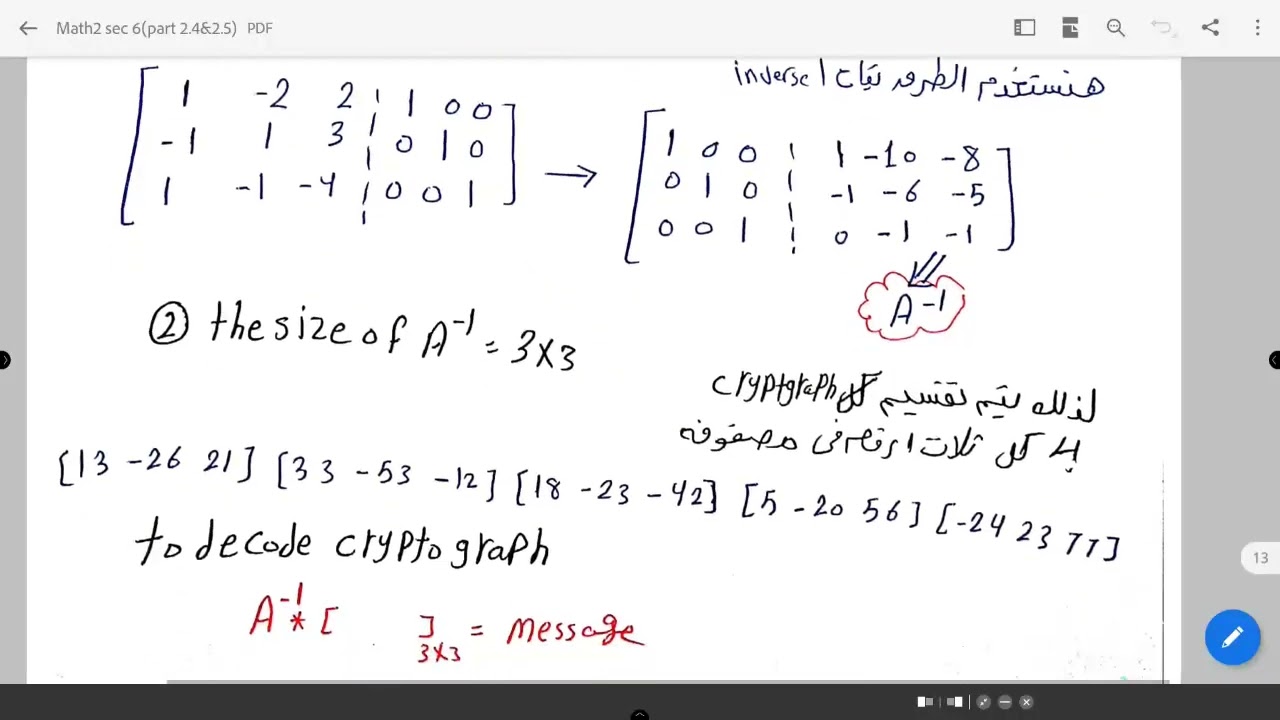 Math2 sec 6(part 2.4&2.5) PDF
هنستخدم الطرف بتاع ال inverse
1 -2 2 1 0 0
-1 1 3 0 1 0
1 -1 -4 0 0 1
→
1 0 0 1 -10 -8
0 1 0 -1 -6 -5
0 0 1 0 -1 -1
A⁻¹
② the size of A⁻¹ = 3x3
لذلك يتم تقسيم كل cryptgraph
كل ثلاث ارقام في مصفوفه
[13 -26 21] [33 -53 -12] [18 -23 -42] [5 -20 56] [-24 23 77]
to decode cryptograph
A⁻¹ * [ ]3x3 = message
13